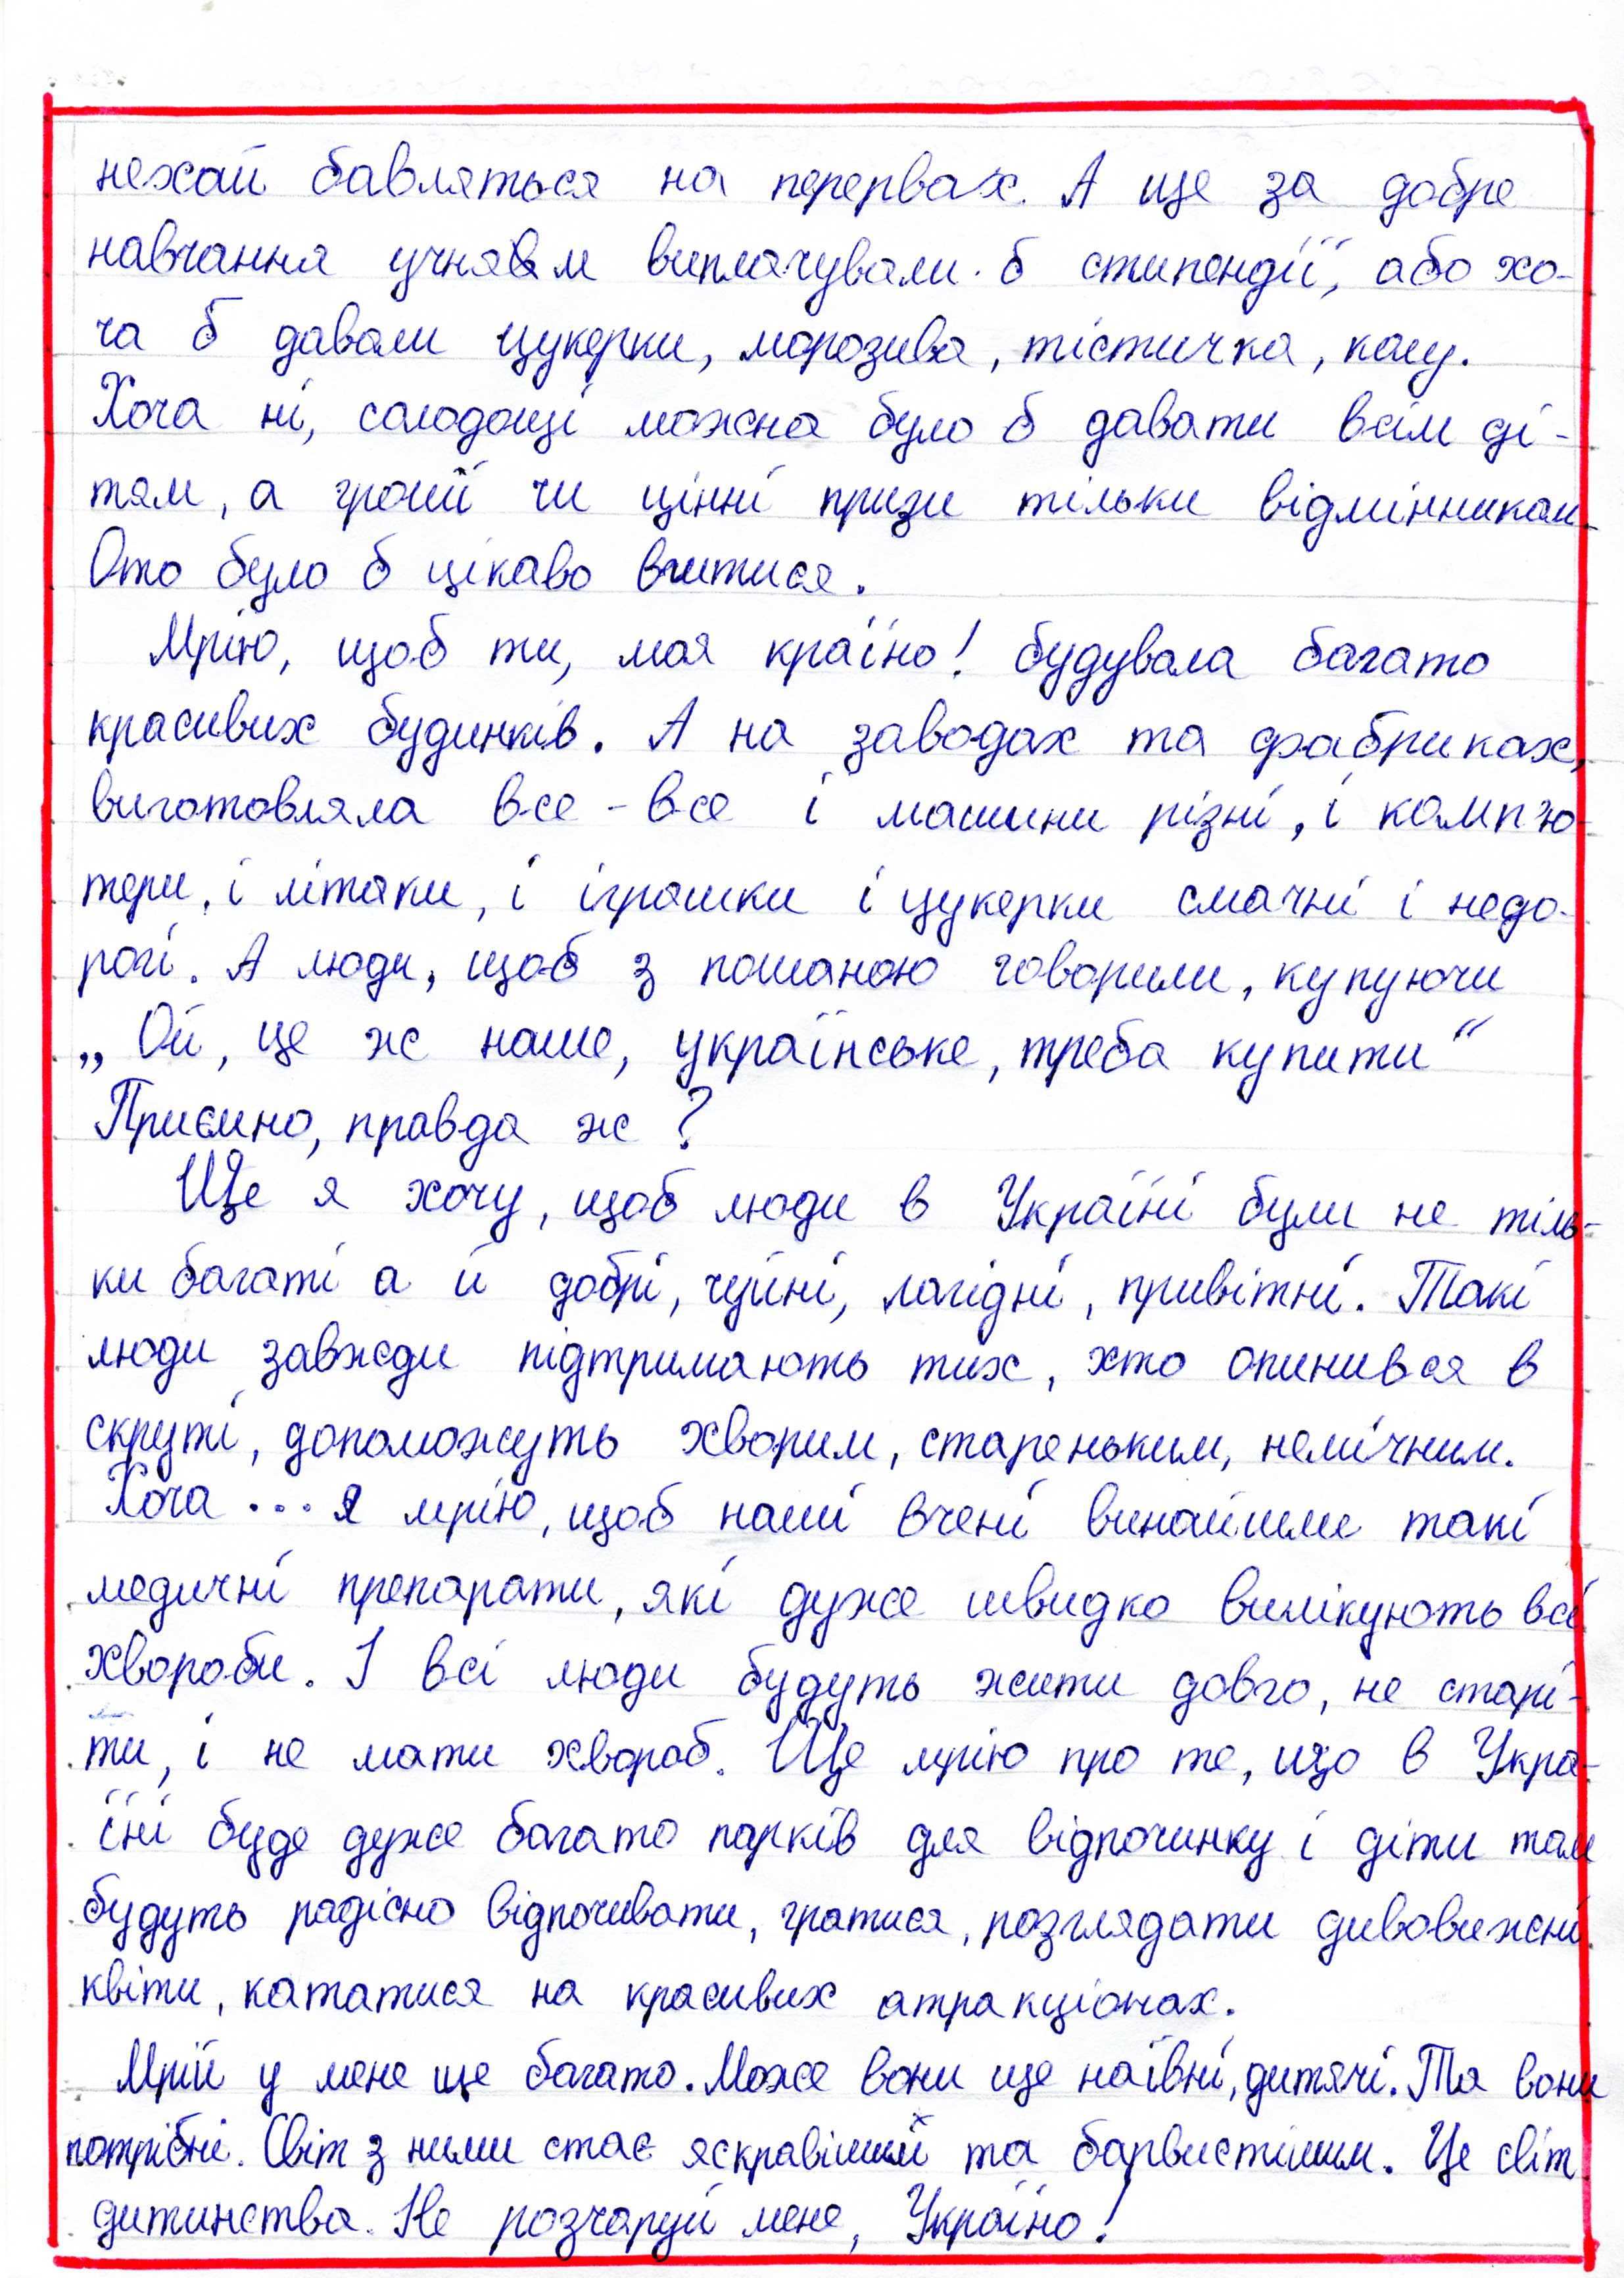 нехай бавляться на перервах. А ще за добре
навчання учням виплачували б стипендії, або хо-
ча б давали цукерки, морозива, тістичка, колу.
Хоча ні, солодощі можна було б давати всім ді-
тям, а гроші чи цінні призи тільки відмінникам.
Ото було б цікаво вчитися.
Мрію, щоб ти, моя країно! будувала багато
красивих будинків. А на заводах та фабриках,
виготовляла все-все і машини різні, і комп'ю-
тери, і літаки, і іграшки і цукерки смачні і недо-
рогі. А люди, щоб з пошаною говорили, купуючи
„Ой, це ж наше, українське, треба купити“
Приємно, правда ж?
Ще я хочу, щоб люди в Україні були не тіль-
ки багаті а й добрі, чуйні, лагідні, привітні. Такі
люди завжди підтримають тих, хто опинився в
скруті, допоможуть хворим, стареньким, немічним.
Хоча ... я мрію, щоб наші вчені винайшли такі
медичні препарати, які дуже швидко вилікують всі
хвороби. І всі люди будуть жити довго, не старі-
ти, і не мати хвороб. Ще мрію про те, що в Укра-
їні буде дуже багато парків для відпочинку і діти там
будуть радісно відпочивати, гратися, розглядати дивовижні
квіти, кататися на красивих атракціонах.
Мрій у мене ще багато. Може вони ще наївні, дитячі. Та вони
потрібні. Світ з ними стає яскравіший та барвистішим. Це світ
дитинства. Не розчаруй мене, Україно!